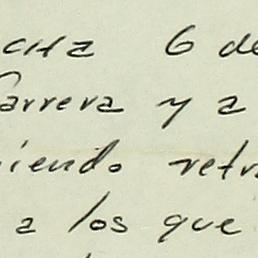 cha 6 de
Carrera y a
iendo retr
a los que